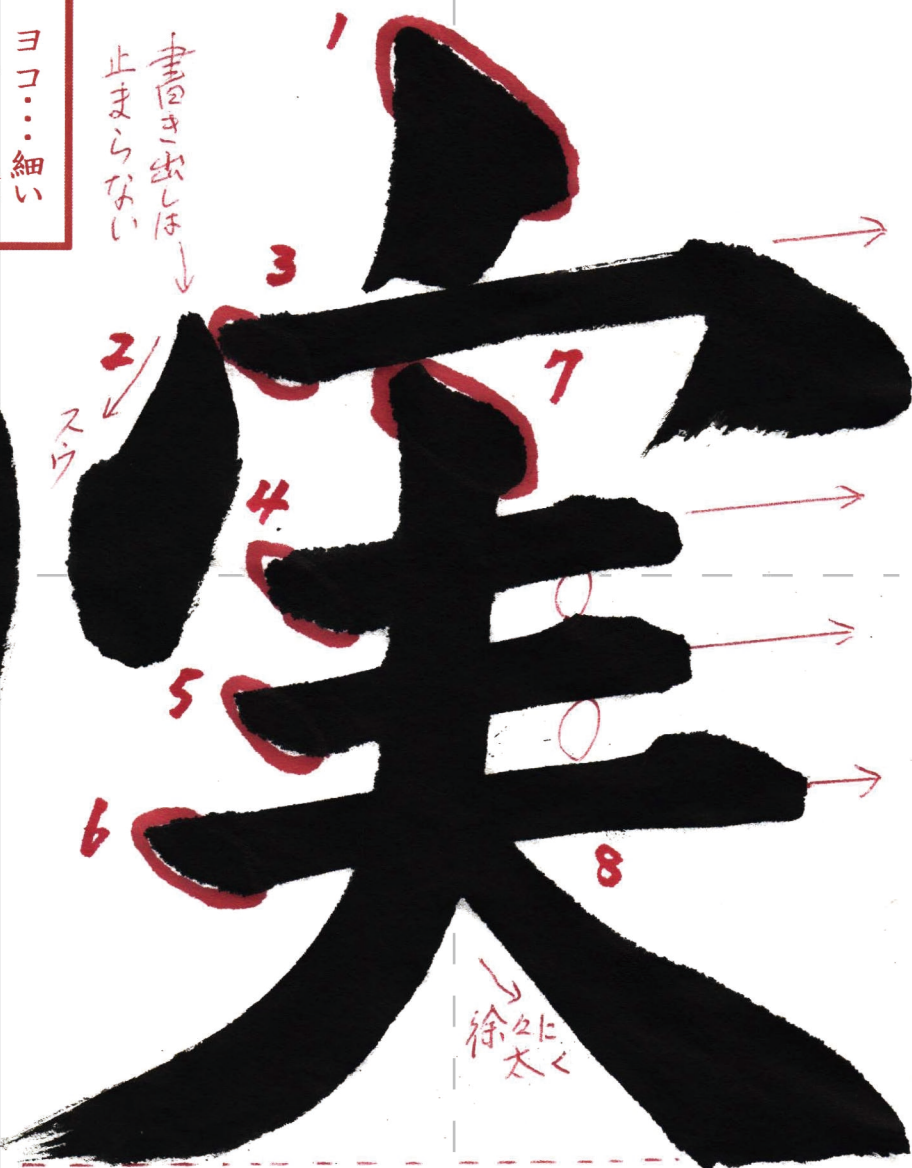 ヨコ…細い
書き出しは
止まらない
1
3
2
スウ
7
4
5
6
8
徐々に
太く
実